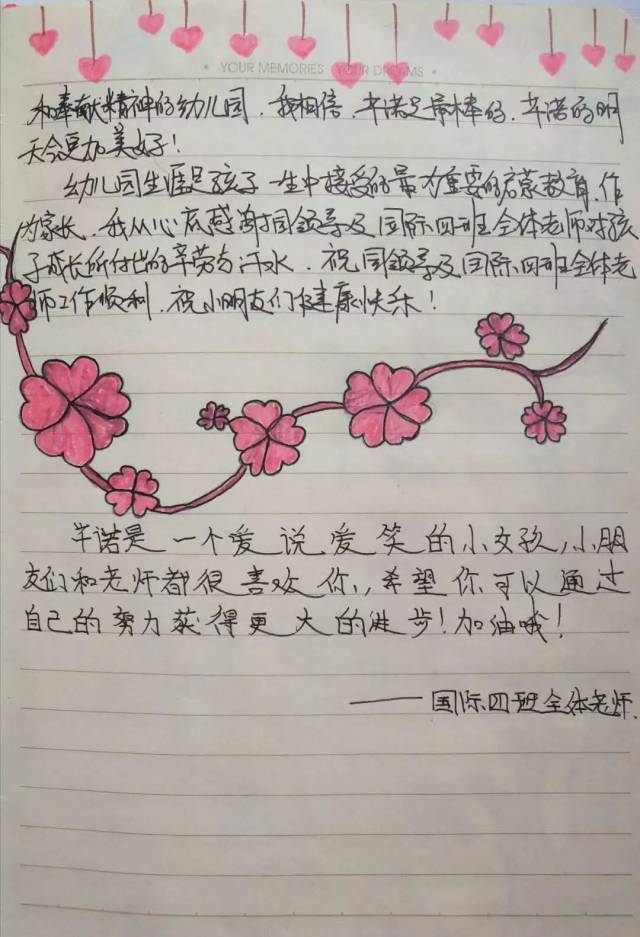 YOUR MEMORIES YOUR DREAMS
和奉献精神的幼儿园.我相信.芊诺是最棒的.芊诺的明
天会更加美好!
幼儿园生涯是孩子一生中接受的最为重要的启蒙教育.作
为家长.我从心底感谢园领导及国际四班全体老师对孩
子成长所付出的辛劳与汗水.祝园领导及国际四班全体老
师工作顺利.祝小朋友们健康快乐!
芊诺是一个爱说爱笑的小女孩,小朋
友们和老师都很喜欢你,,希望你可以通过
自己的努力获得更大的进步!加油哦!
——国际四班全体老师.